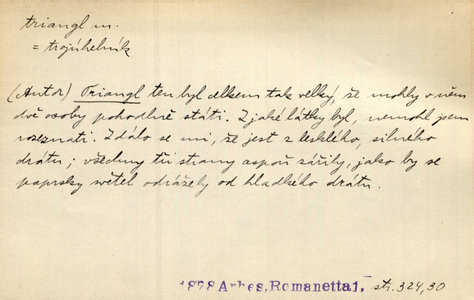 triangl m.
= trojúhelník
(Autor) Triangl ten byl celkem tak velký, že mohly v něm
dvě osoby pohodlně státi. Z jaké látky byl, nemohl jsem
rozeznati. Zdálo se mi, že jest z lesklého, silného
drátu; všechny tři strany aspoň zářily, jako by se
paprsky světel odrážely od hladkého drátu.
1878 Arbes, Romanetta 1. str. 324, 30